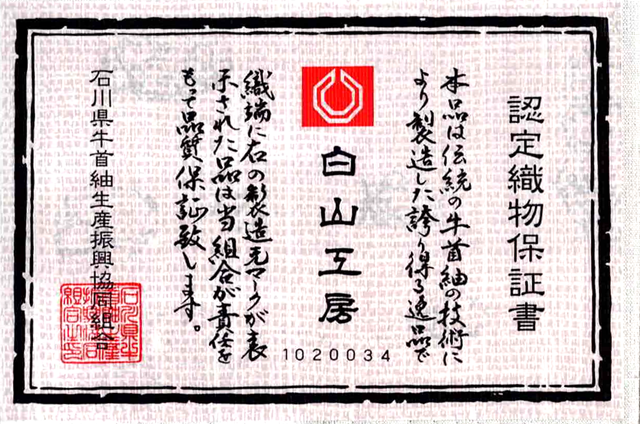 認定織物保証書
本品は伝統の牛首紬の技術に
より製造した誇り得る逸品で
白山工房
1020034
織端に右の製造元マークが表
示された品は当組合が責任を
もって品質保証致します。
石川県牛首紬生産振興協同組合